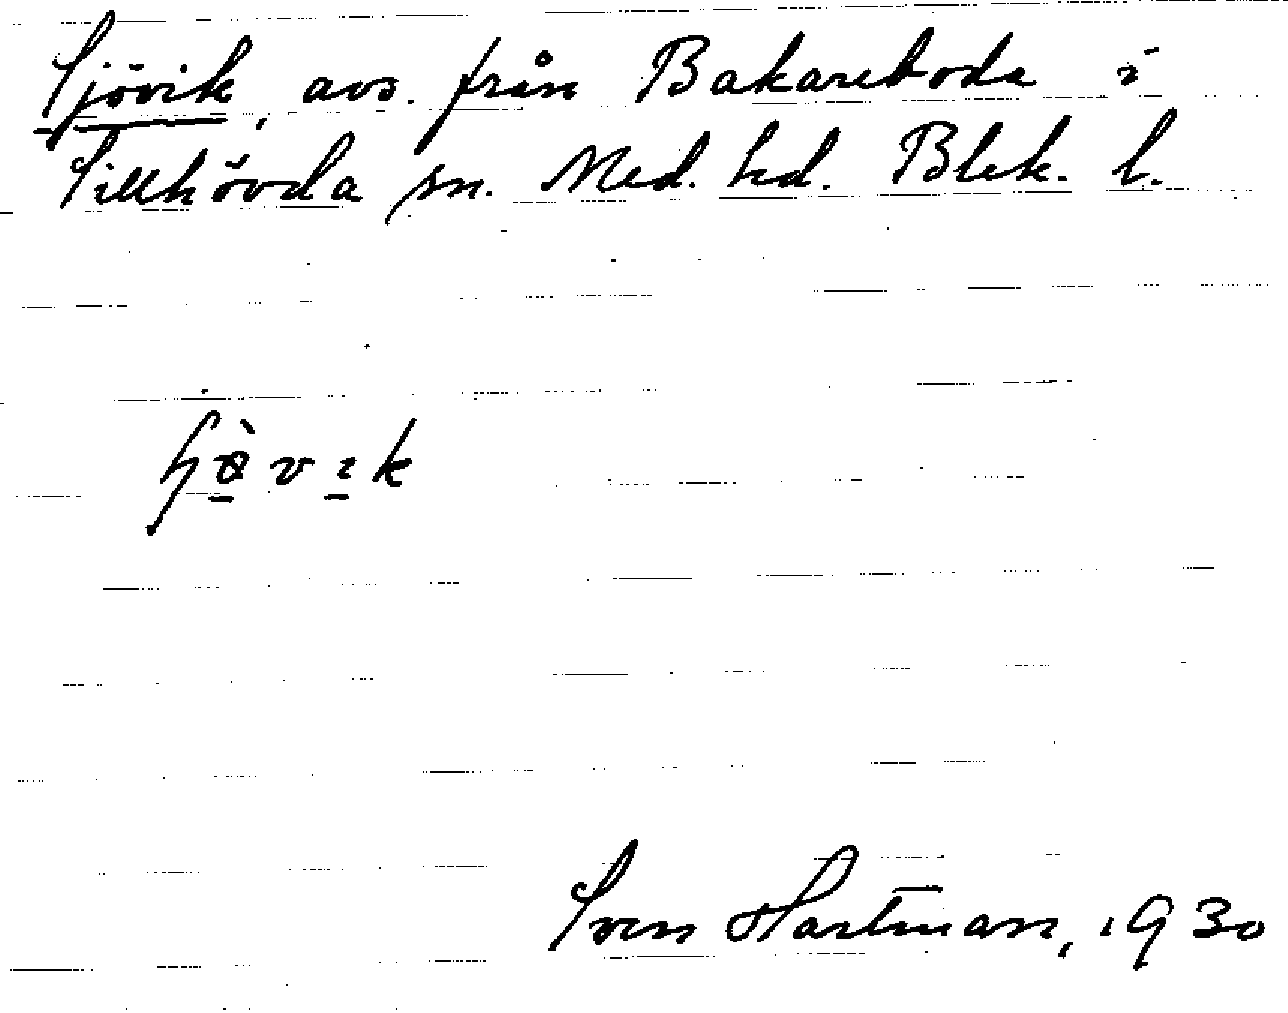 Sjövik, avs. från Bakareboda i
Tillhövda sn. Med. hd. Blek. l.
ɧø̀vɪk
Sven Hartman, 1930